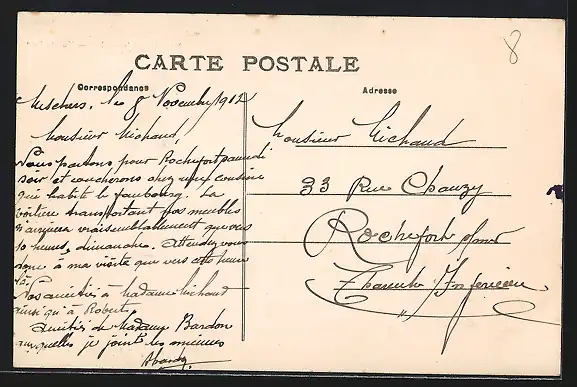 8
CARTE POSTALE
Correspondance
Adresse
Meschers, le 8 Novembre 1912
Monsieur Michaud,
Nous partons pour Rochefort samedi
soir et coucherons chez une cousine
qui habite le faubourg. La
voiture transportant nos meubles
n'arrivera vraisemblablement que vers
10 heures, dimanche. Attendez-vous
donc à ma visite que vers cette heure
là.
Nos amitiés à Madame Michaud
ainsi qu'à Robert,
Amitiés de Madame Bardon
auxquelles je joins les miennes
Monsieur Michaud
33 Rue Chanzy
Rochefort s/mer
Charente Inférieure